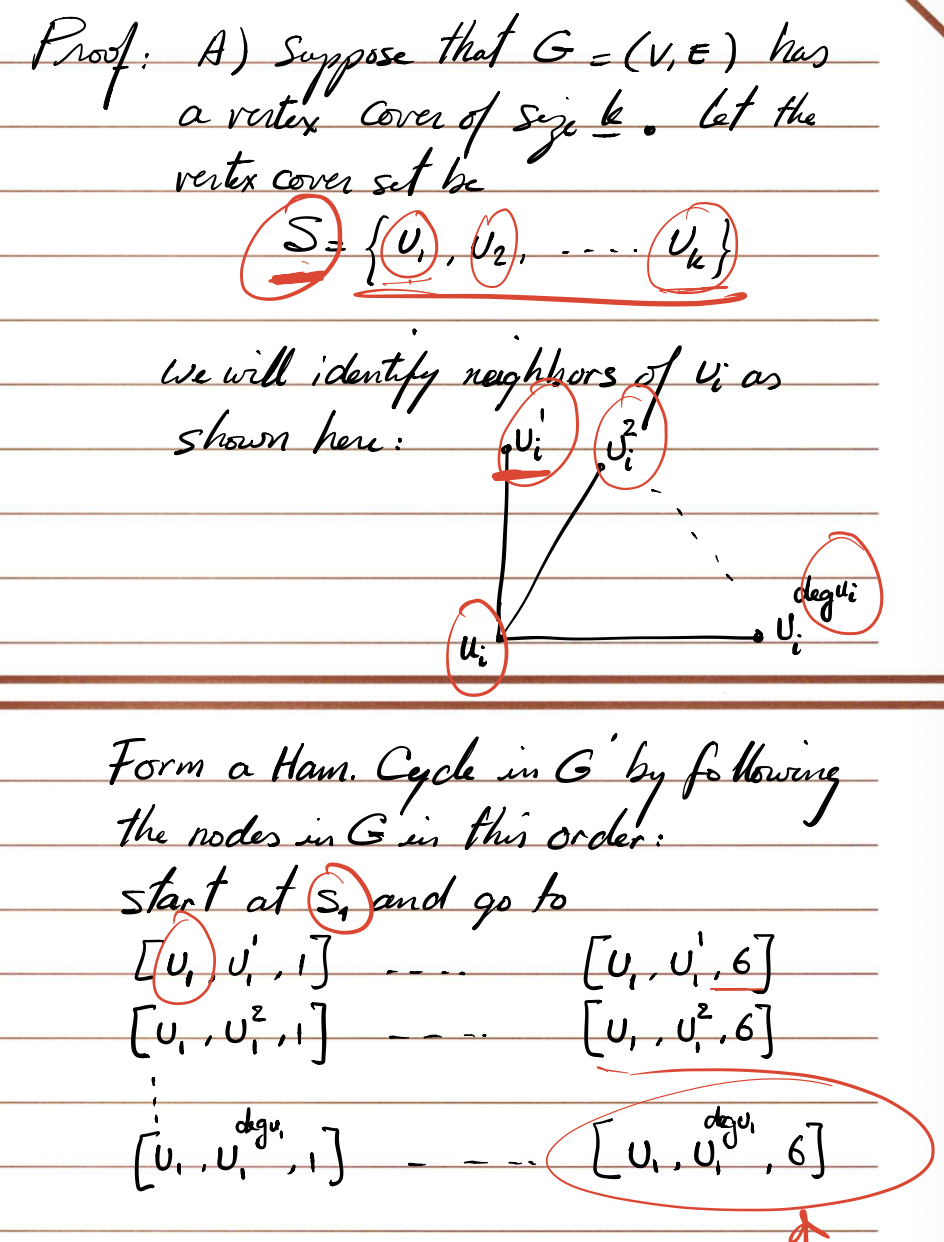 Proof: A) Suppose that G = (V, E) has
a vertex cover of size k. Let the
vertex cover set be
S = {U₁, U₂, ..... Uₖ}
we will identify neighbors of Uᵢ as
shown here:
Uᵢ¹ Uᵢ²
Uᵢ^deg uᵢ
uᵢ
Form a Ham. Cycle in G' by following
the nodes in G in this order:
start at S₁ and go to
[U₁, U₁¹, 1] ---- [U₁, U₁¹, 6]
[U₁, U₁², 1] ---- [U₁, U₁², 6]
[U₁, U₁^deg u₁, 1] ---- [U₁, U₁^deg u₁, 6]